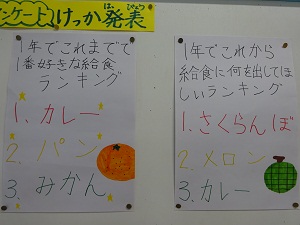 ンケートけっか発表
はっ ぴょう
1年でこれまでで
1番好きな給食
ランキング
1、カレー
2、パン
3、みかん
1年でこれから
給食に何を出してほ
しいランキング
1、さくらんぼ
2、メロン
3、カレー